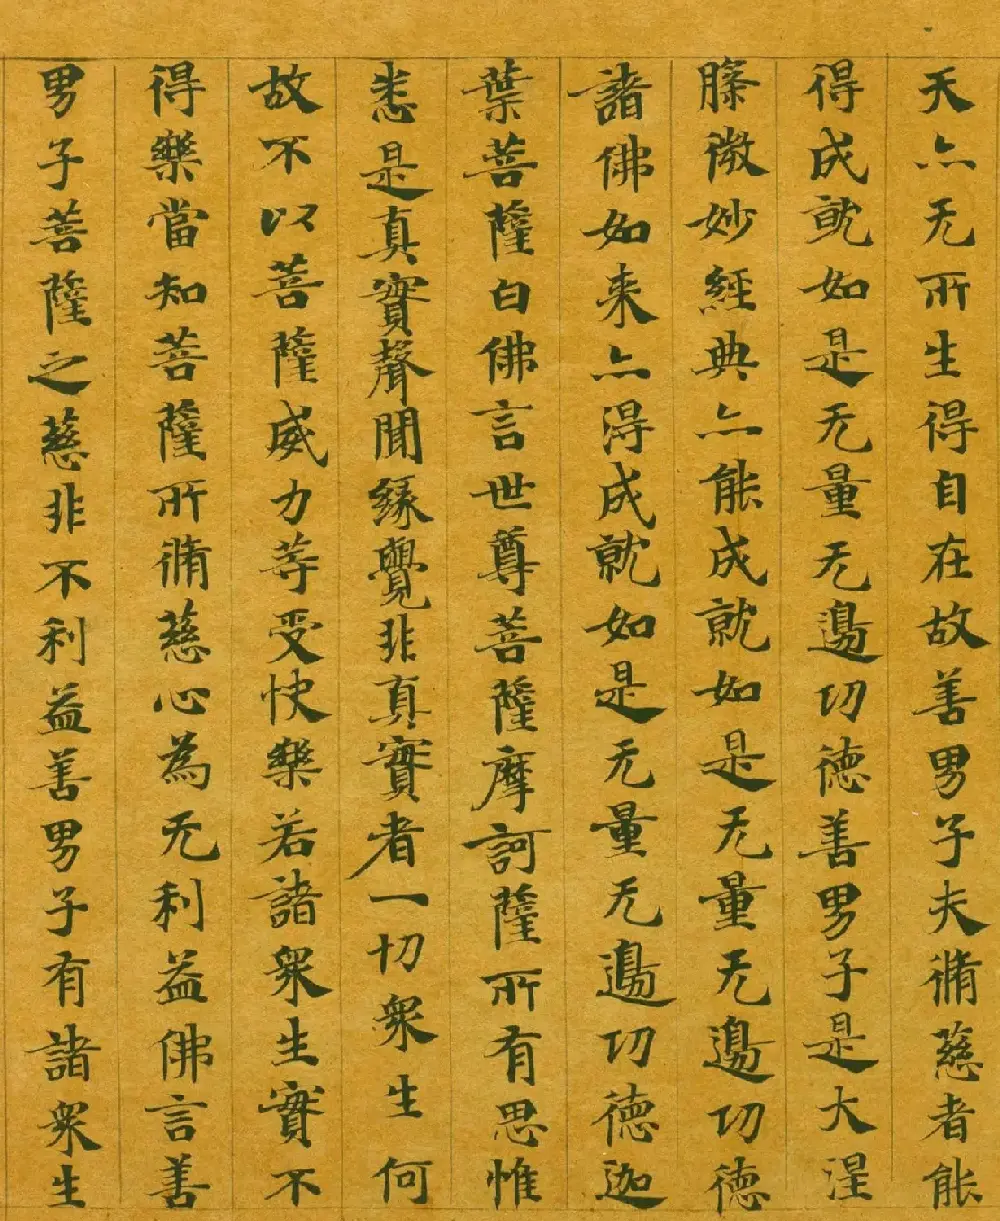 天亦无所生得自在故善男子夫脩慈者能
得成就如是无量无邊功德善男子是大涅
槃微妙經典亦能成就如是无量无邊功德
諸佛如来亦得成就如是无量无邊功德迦
葉菩薩白佛言世尊菩薩摩訶薩所有思惟
悉是真實聲聞緣覺非真實者一切衆生何
故不以菩薩威力等受快樂若諸衆生實不
得樂當知菩薩所脩慈心為无利益佛言善
男子菩薩之慈非不利益善男子有諸衆生